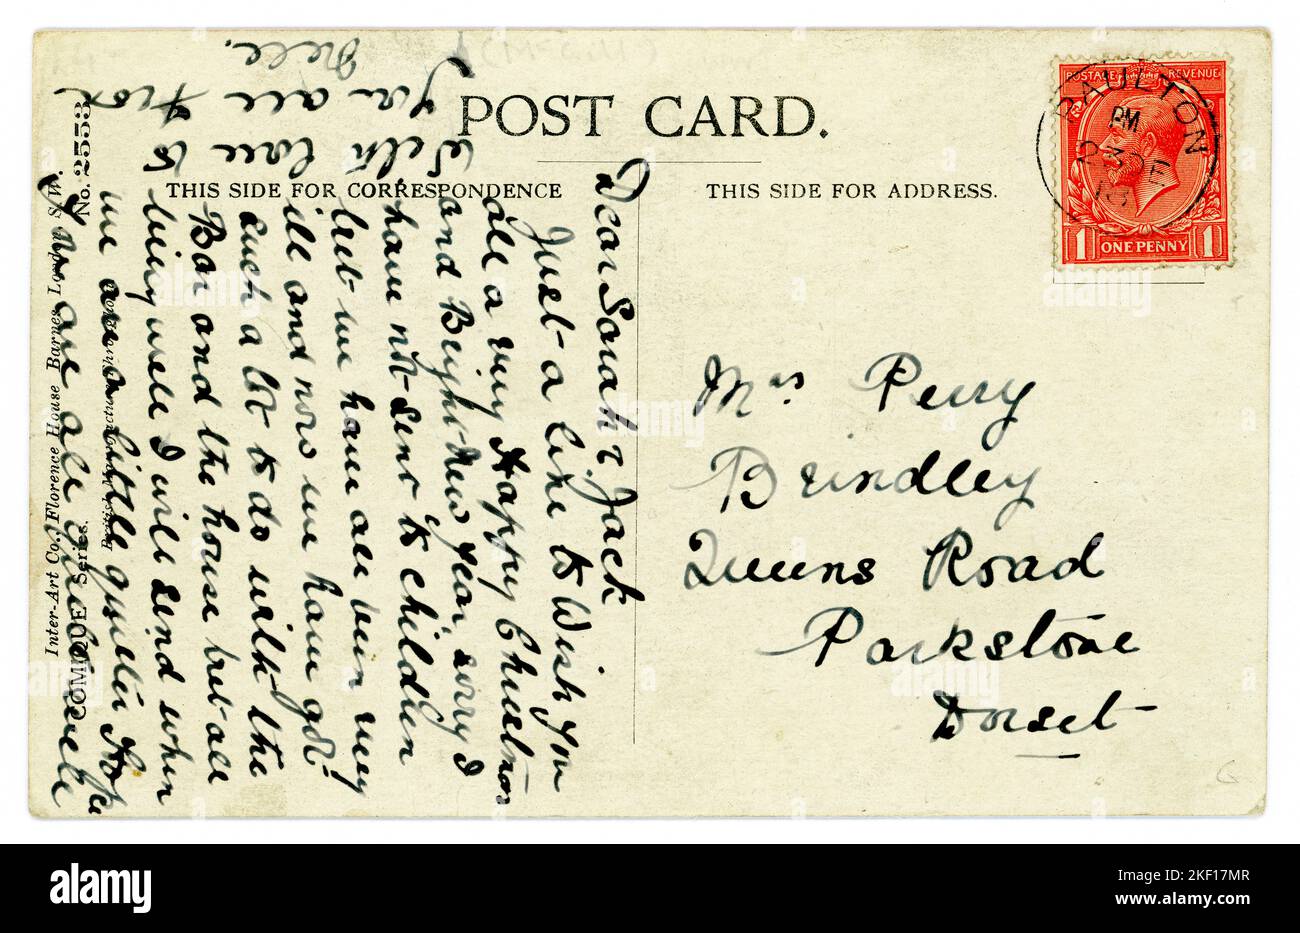 POST CARD.
THIS SIDE FOR CORRESPONDENCE
THIS SIDE FOR ADDRESS.
POSTAGE REVENUE
1 ONE PENNY 1
PAULTON
PM
3 DE
Dear Sarah & Jack
Just a line to Wish you
all a very Happy Christmas
and Bright New Year, sorry I
have not sent to children
but we have all been very
ill and now we have got
such a lot to do with the
Bar and the house but all
being well I will send when
we are a little quieter Hope
you are all quite well
With love to
you all from
Nell.
Mrs Perry
Brindley
Queens Road
Parkstone
Dorset
Inter-Art Co., Florence House Barnes, London S.W.
COMIQUE Series. No. 2553
British
alamy
Image ID: 2KF17MR
www.alamy.com